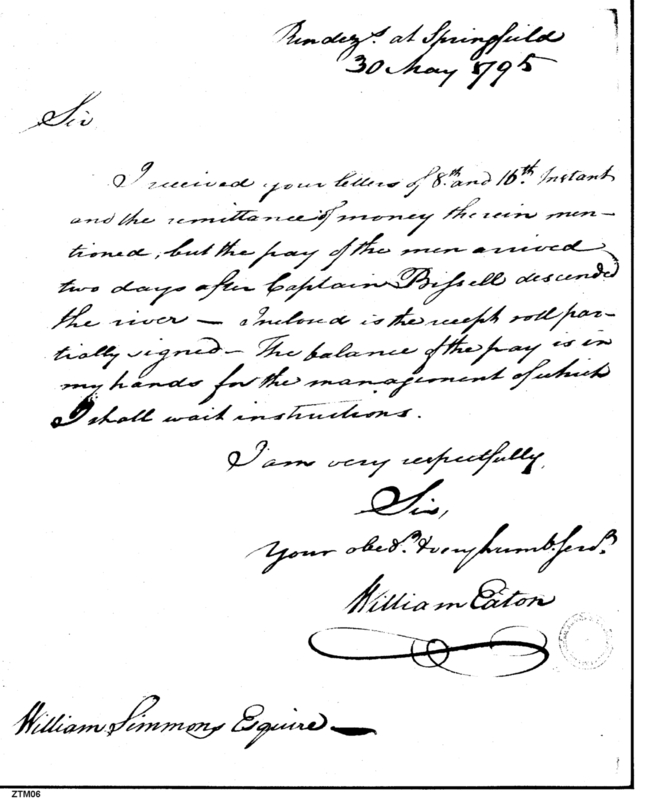 Rendezs. at Springfield
30 May 1795
Sir
I received your letters of 8th. and 16th. Instant
and the remittance of money therein men–
tioned, but the pay of the men arrived
two days after Captain Bissell descended
the river — Inclosed is the receipt roll par–
tially signed – The balance of the pay is in
my hands for the management of which
I shall wait instructions.
I am very respectfully,
Sir,
Your obedt. & very humb. servt.
William Eaton
William Simmons Esquire —
ZTM06